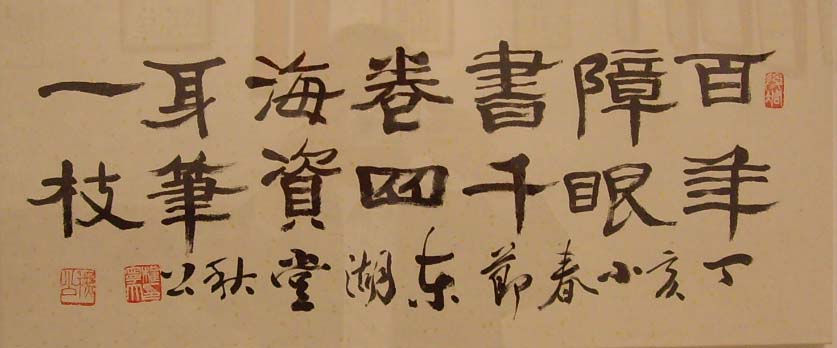 百年
障眼
書千
卷四
海資
身筆
一枝
丁亥小春節东湖堂秋公